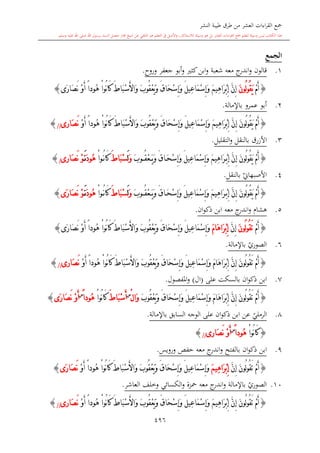 جمع القراءات العشر من طرق طيبة النشر
الجمع
١. قالون واندرج معه شعبة وابن كثير وأبو جعفر وروح.
﴿ أَمْ يَقُولُونَ إِنَّ إِبْرَاهِيمَ وَإِسْمَاعِيلَ وَإِسْحَاقَ وَيَعْقُوبَ وَالْأَسْبَاطَ كَانُوا هُوداً أَوْ نَصَارَى ﴾
٢. أبو عمرو بالإمالة.
﴿ أَمْ يَقُولُونَ إِنَّ إِبْرَاهِيمَ وَإِسْمَاعِيلَ وَإِسْحَاقَ وَيَعْقُوبَ وَالْأَسْبَاطَ كَانُوا هُوداً أَوْ نَصَارى ﴾
٣. الأزرق بالنقل والتقليل.
﴿ أَمْ يَقُولُونَ إِنَّ إِبْرَاهِيمَ وَإِسْمَاعِيلَ وَإِسْحَاقَ وَيَعْقُوبَ كَانُوا نَصَارى ﴾
٤. الأصبهاني بالنقل.
﴿ أَمْ يَقُولُونَ إِنَّ إِبْرَاهِيمَ وَإِسْمَاعِيلَ وَإِسْحَاقَ وَيَعْقُوبَ كَانُوا نَصَارَى ﴾
٥. هشام واندرج معه ابن ذكوان.
﴿ أَمْ يَقُولُونَ إِنَّ إِبْرَاهَامَ وَإِسْمَاعِيلَ وَإِسْحَاقَ وَيَعْقُوبَ وَالْأَسْبَاطَ كَانُوا هُوداً أَوْ نَصَارَى ﴾
٦. الصوري بالإمالة.
﴿ أَمْ يَقُولُونَ إِنَّ إِبْرَاهَامَ وَإِسْمَاعِيلَ وَإِسْحَاقَ وَيَعْقُوبَ وَالْأَسْبَاطَ كَانُوا هُوداً أَوْ نَصَارى ﴾
٧. ابن ذكوان بالسكت على (ال) والمفصول.
﴿ أَمْ يَقُولُونَ إِنَّ إِبْرَاهَامَ وَإِسْمَاعِيلَ وَإِسْحَاقَ وَيَعْقُوبَ وَالْأَسْبَاطَ كَانُوا هُوداً أَوْ نَصَارَى ﴾
٨. الرملي عن ابن ذكوان على الوجه السابق بالإمالة.
﴿ كَانُوا هُوداً أَوْ نَصَارى ﴾
٩. ابن ذكوان بالفتح واندرج معه حفص ورويس.
﴿ أَمْ تَقُولُونَ إِنَّ إِبْرَاهِيمَ وَإِسْمَاعِيلَ وَإِسْحَاقَ وَيَعْقُوبَ وَالْأَسْبَاطَ كَانُوا هُوداً أَوْ نَصَارَى ﴾
١٠. الصوري بالإمالة واندرج معه حمزة والكسائي وخلف العاشر.
﴿ أَمْ تَقُولُونَ إِنَّ إِبْرَاهِيمَ وَإِسْمَاعِيلَ وَإِسْحَاقَ وَيَعْقُوبَ وَالْأَسْبَاطَ كَانُوا هُوداً أَوْ نَصَارى ﴾
٤٩٦